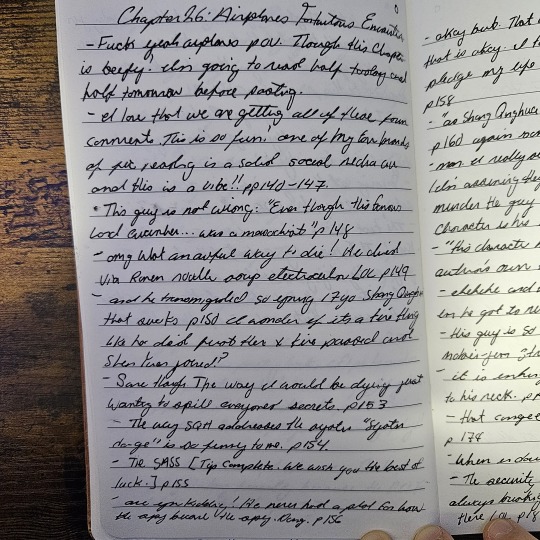 Chapter 26: Airplane's Fortuitous Encounter
- Fuck yeah airplanes pov. Though this Chapter
is beefy. Im going to read half today and
half tomorrow before posting.
- I love that we are getting all of these forum
comments. This is so fun! one of my fav brands
of fic reading is a solid social media au
and this is a vibe!! pp 140-147.
• This guy is not wrong: "Even though this famous
Lord Cucumber... was a masochist" p148
- omg what an awful way to die! He died
via Ramen noodle soup electrocution LOL p149
- and he transmigrated so young 17yo Shang Qinghua
that sucks p150 I wonder if its a time thing
like he died first then x time passed and
Shen Yuan joined!?
- Same though The way I would be dying just
wanting to spill everyones secrets. p153
- The way SQH addresses the system "System
da-ge" is so funny to me. p154.
- The SASS [Tip Complete. We wish you the best of
luck.] p155
- are you kidding! He never had a plot for how
the p156
- okay but. That
that is okay. I
pledge my life
p158
- "as Shang Qinghua
p160 again
- man I really
I'm assuming they
murder the guy
Character is his
- "this character
author's own
- hehehe and
he got to
- this guy is so
it is
to his neck.
- that
p 174
- When
- The security
always
there LOL p18